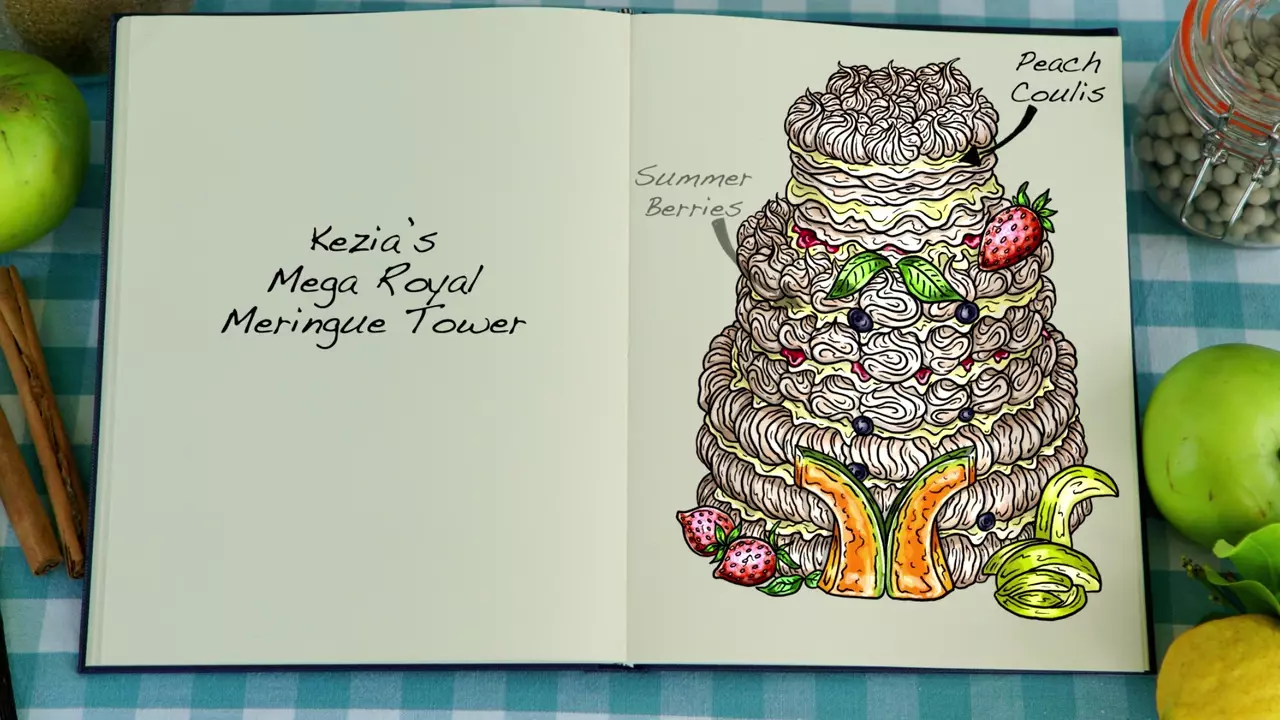 Kezia's
Mega Royal
Meringue Tower
Peach
Coulis
Summer
Berries